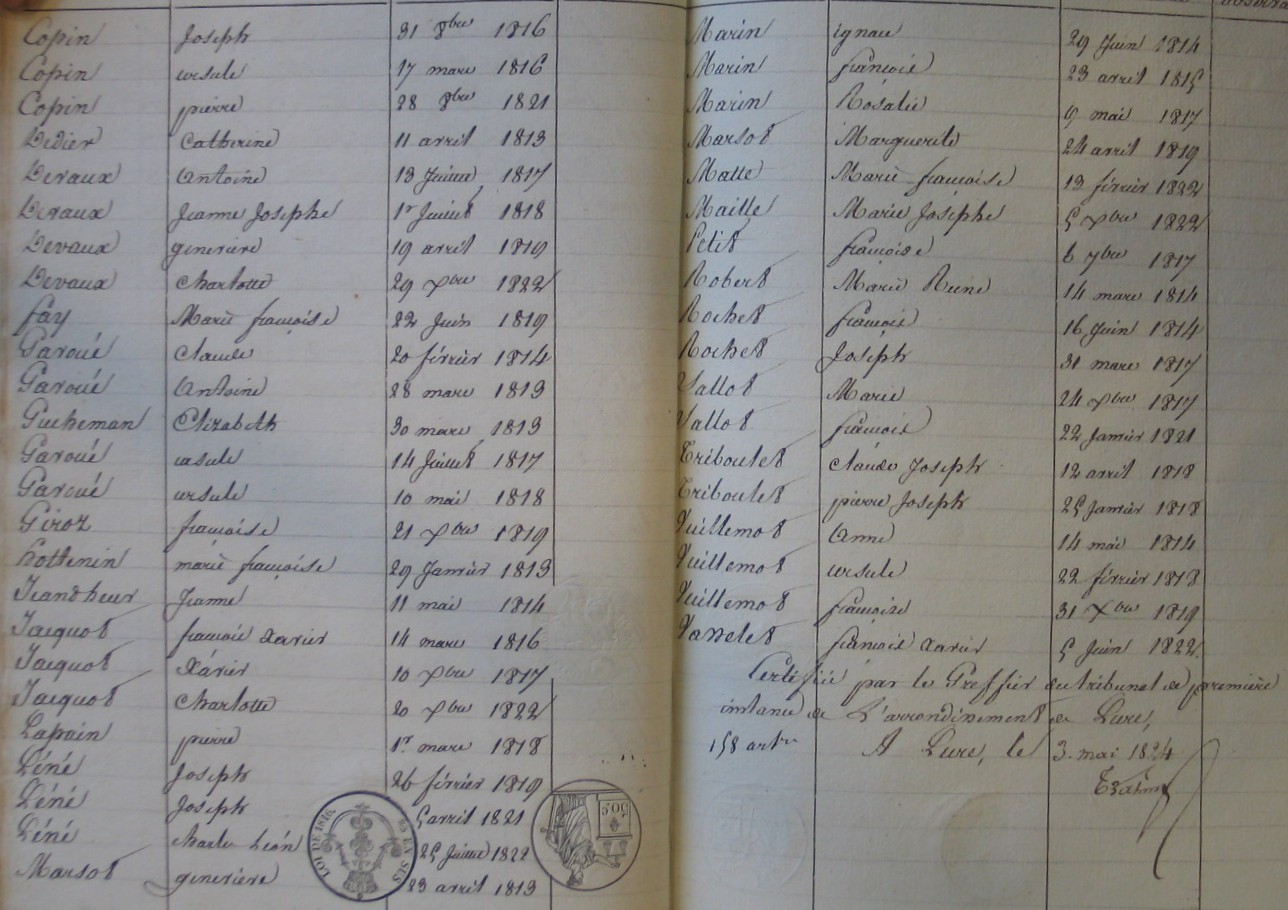 Copin Joseph 31 8bre 1816
Copin ursule 17 mars 1816
Copin pierre 28 8bre 1821
Didier Catherine 11 avril 1813
Devaux Antoine 13 Juillet 1817
Devaux Jeanne Josephe 1er Juillet 1818
Devaux geneviève 19 avril 1819
Devaux Charlotte 29 xbre 1822
fay Marie françoise 22 Juin 1819
Garoué Claude 20 février 1814
Garoué Antoine 28 mars 1813
Gucheman Elizabeth 30 mars 1813
Garoué ursule 14 Juillet 1817
Garoué ursule 10 mai 1818
Giroz françoise 21 xbre 1819
hottenin marie françoise 29 Janvier 1813
Jeandheur Jeanne 11 mai 1814
Jacquot françois Xavier 14 mars 1816
Jacquot Xavier 10 xbre 1817
Jacquot Charlotte 20 xbre 1822
Lapain pierre 1er mars 1818
Léné Joseph 26 février 1819
Léné Joseph 5 avril 1821
Léné Charles Léon 25 Juillet 1822
Marsot geneviève 23 avril 1813
LOI DE 1816
Marin ignace 29 Juin 1814
Marin françois 23 avril 1815
Marin Rosalie 9 mai 1817
Marsot Marguerite 24 avril 1819
Matte Marie françoise 13 février 1822
Maille Marie Josephe 5 xbre 1822
Petit françoise 6 7bre 1817
Robert Marie Reine 14 mars 1814
Rochet françois 16 Juin 1814
Rochet Joseph 31 mars 1817
Vallot Marie 24 xbre 1817
Vallot françois 22 Janvier 1821
Triboulet Claude Joseph 12 avril 1818
Triboulet pierre Joseph 25 Janvier 1818
Vuillemot Anne 14 mai 1814
Vuillemot ursule 22 février 1818
Vuillemot françoise 31 xbre 1819
Vanelet françois Xavier 5 Juin 1822
Certifié par le Greffier du tribunal de première
instance de L'arrondissement de Lure,
158 artes A Lure, le 3 mai 1824